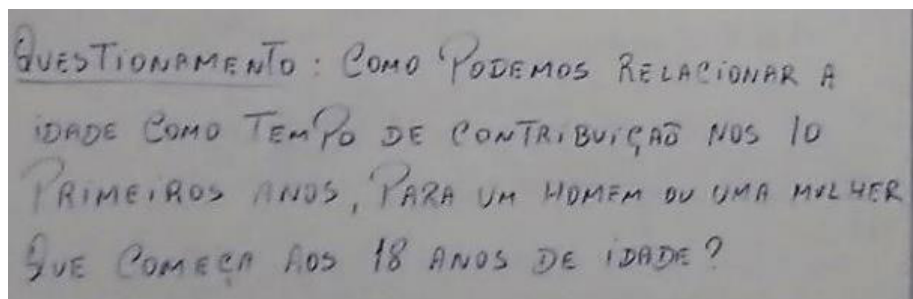 QUESTIONAMENTO: COMO PODEMOS RELACIONAR A
IDADE COMO TEMPO DE CONTRIBUIÇÃO NOS 10
PRIMEIROS ANOS, PARA UM HOMEM OU UMA MULHER
QUE COMEÇA AOS 18 ANOS DE IDADE?